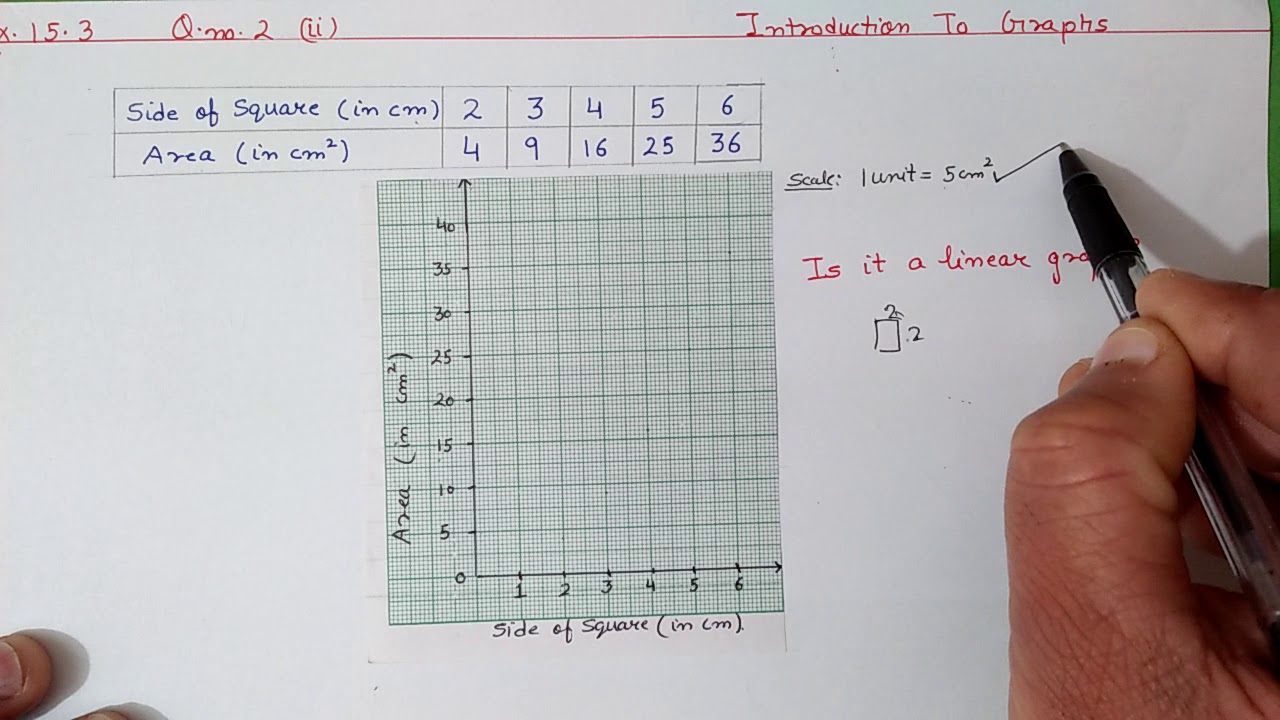 x. 15.3 Q.no. 2 (ii) Introduction To Graphs
Side of Square (in cm) 2 3 4 5 6
Area (in cm²) 4 9 16 25 36
Scale: 1 unit = 5 cm²
Is it a linear
2
2
40
35
30
25
20
15
10
5
0
Area (in cm²)
1 2 3 4 5 6
Side of Square (in cm).